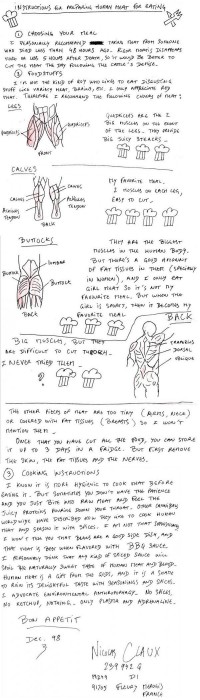 INSTRUCTIONS FOR PREPARING HUMAN MEAT FOR EATING
① CHOOSING YOUR MEAL
I PERSONALLY RECOMMEND TAKING MEAT FROM SOMEONE
WHO DIED LESS THAN 48 HOURS AGO. RIGOR MORTIS DISAPPEARS
HOURS AFTER DEATH, SO IT WOULD BE BETTER TO
CUT THE MEAT THE DAY FOLLOWING THE CATTLE'S DEMISE.
② FOODSTUFFS
I'M NOT THE KIND OF GUY WHO LIKES TO EAT DISGUSTING
STUFF LIKE VARIETY MEAT, BRAINS, ETC. I ONLY APPRECIATE RED
MEAT. THEREFORE I RECOMMEND THE FOLLOWING CHOICES OF MEAT:
LEGS
QUADRICEPS
QUADRICEPS
FRONT
QUADRICEPS ARE THE 2
BIG MUSCLES ON THE FRONT
OF THE LEGS. THEY PROVIDE
BIG JUICY STEAKS.
CALVES
CALVES
CALVES
ACHILLES
TENDON
ACHILLES
TENDON
BACK
MY FAVORITE MEAL.
2 MUSCLES ON EACH LEG,
EASY TO CUT.
BUTTOCKS
LUMBAR
BUTTOCK
BUTTOCK
BACK
THEY ARE THE BIGGEST
MUSCLES IN THE HUMAN BODY.
BUT THERE'S A GOOD AMOUNT
OF FAT TISSUES IN THEM (SPECIALLY
IN WOMAN), AND I ONLY EAT
GIRL MEAT SO IT'S NOT MY
FAVOURITE MEAL. BUT WHEN THE
GIRL IS SPORTY, THEN IT BECOMES MY
FAVORITE MEAL.
BACK
BIG MUSCLES, BUT THEY
ARE DIFFICULT TO CUT THROUGH.
I NEVER TRIED THEM.
TRAPEZIUS
DORSAL
OBLIQUE
THE OTHER PIECES OF MEAT ARE TOO TINY (ARMS, NECK)
OR COVERED WITH FAT TISSUES (BREASTS) SO I WON'T
MENTION THEM.
ONCE THAT YOU HAVE CUT ALL THE FOOD, YOU CAN STORE
IT UP TO 3 DAYS IN A FRIDGE. BUT FIRST REMOVE
THE SKIN, THE FAT TISSUES AND THE NERVES.
③ COOKING INSTRUCTIONS
I KNOW IT IS MORE HYGIENIC TO COOK MEAT BEFORE
EATING IT. BUT SOMETIMES YOU DON'T HAVE THE PATIENCE
AND YOU JUST BITE AND RAW MEAT AND FEEL THE
JUICY PROTEINS POURING DOWN YOUR THROAT. OTHER CANNIBALS
WORLDWIDE HAVE DESCRIBED HOW THEY LIKE TO COOK HUMAN
MEAT AND SEASON IT WITH SPICES. I AM NOT THAT
I WON'T TELL YOU THAT BEANS ARE A GOOD SIDE DISH, AND
THAT MEAT IS BEST WHEN FLAVORED WITH BBQ SAUCE.
I PERSONALLY THINK THAT ANY KIND OF SPICED SAUCE WILL
SPOIL THE NATURALLY SWEET TASTE OF HUMAN MEAT AND BLOOD.
HUMAN MEAT IS A GIFT FROM THE GODS, AND IT IS A SHAME
TO RUIN ITS DELIGHTFUL TASTE WITH SEASONINGS AND SPICES.
I ADVOCATE ENVIRONMENTAL ANTHROPOPHAGY. NO SPICES,
NO KETCHUP, NOTHING. ONLY PLASMA AND ADRENALINE.
BON APPETIT
DEC. 98
NICOLAS CLAUX
D1
FLEURY MEROGIS
FRANCE